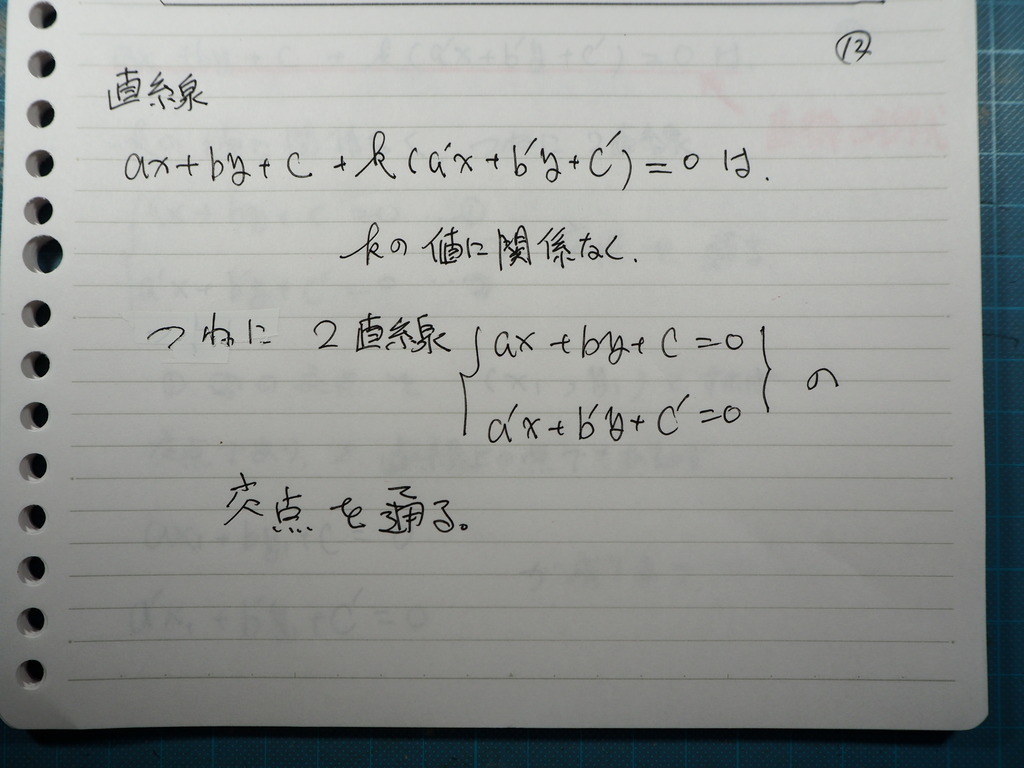 ⑫
直線
ax+by+c+k(a'x+b'y+c')=0 は.
kの値に関係なく.
つねに 2直線 { ax+by+c=0 } の
a'x+b'y+c'=0
交点を通る。